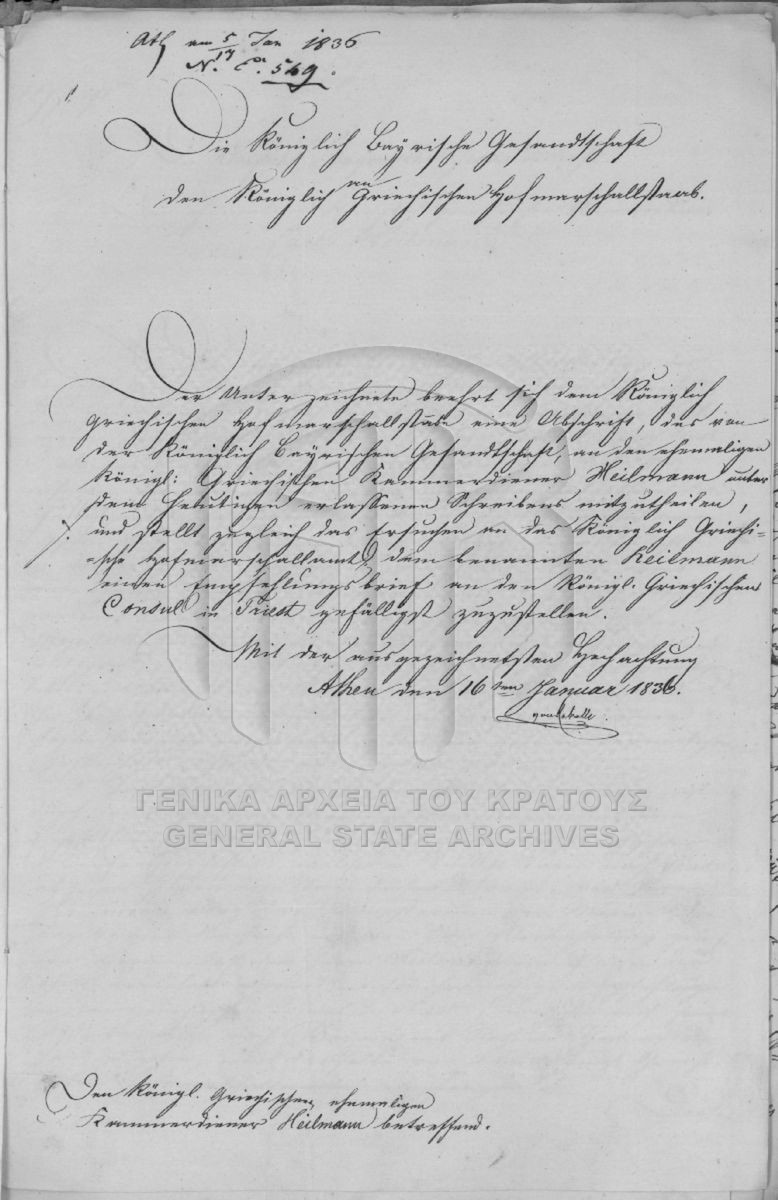 Ath am 5/17 Jan 1836
N. E. 549.
Die Königlich Bayrische Gesandtschaft
an
den Königlich Griechischen Hofmarschallstaab.
Der Unterzeichnete beehrt sich dem Königlich
Griechischen Hofmarschallstabe eine Abschrift, des von
der Königlich Bayrischen Gesandtschaft, an den ehemaligen
Königl: Griechischen Kammerdiener Heilmann unter
dem Heutigen erlassenen Schreibens mitzutheilen,
und stellt zugleich das Ersuchen an das Königlich Griechi-
-sche Hofmarschallamt dem benannten Heilmann
einen Empfehlungsbrief an den Königl. Griechischen
Consul in Triest gefälligst zuzustellen.
Mit der ausgezeichnetsten Hochachtung
Athen den 16ten Januar 1836.
ΓΕΝΙΚΑ ΑΡΧΕΙΑ ΤΟΥ ΚΡΑΤΟΥΣ
GENERAL STATE ARCHIVES
Den Königl. Griechischen ehemaligen
Kammerdiener Heilmann betreffend.